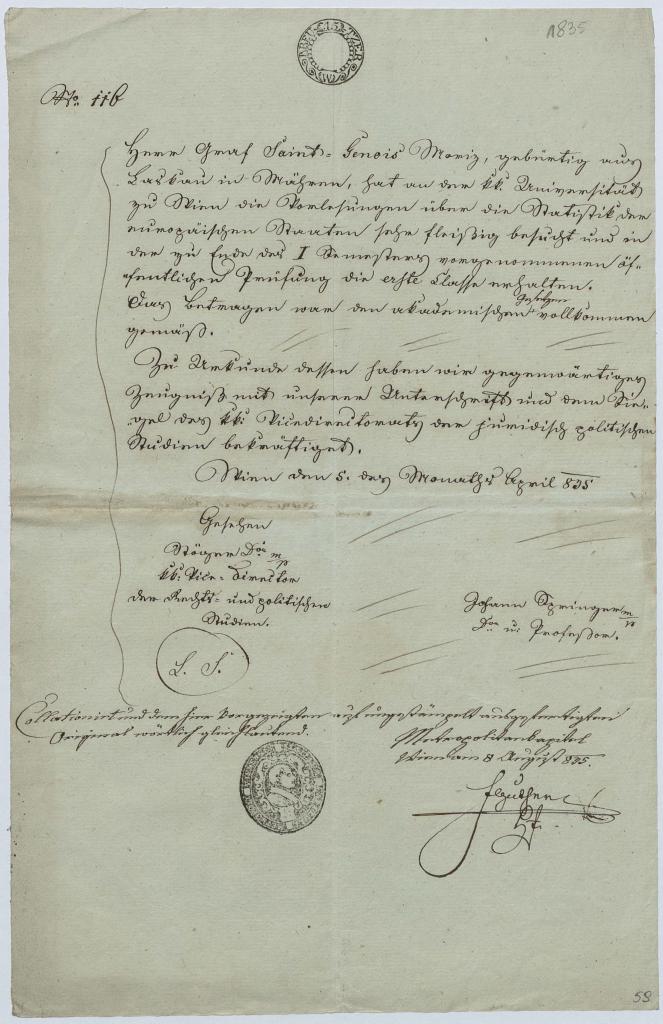 1835
No. 116
Herr Graf Saint-Genois Moriz, gebürtig aus
Laskau in Mähren, hat an der kk: Universität
zu Wien die Vorlesungen über die Statistik der
europäischen Staaten sehr fleißig besucht und in
der zu Ende des I Semesters vorgenommenen öf-
fentlichen Prüfung die erste Classe erhalten.
Das Betragen war den akademischen Gesetzen vollkommen
gemäß.
Zu Urkunde dessen haben wir gegenwärtiges
Zeugniß mit unserer Unterschrift und dem Sie-
gel des kk: Vicedirectorats der juridisch politischen
Studien bekräftiget.
Wien den 5. des Monaths April 835
Gesehen
Stöger Dor m/p
kk: Vice-Director
der Rechts- und politischen
Studien.
Johann Springer m/p
Dor u: Professor.
L. S.
Collationirt und dem hier vorgezeigten auf ungestämpelt ausgefertigten
Original wörtlich gleichlautend.
Metropolitankapitel
Wien am 8 August 835.
59